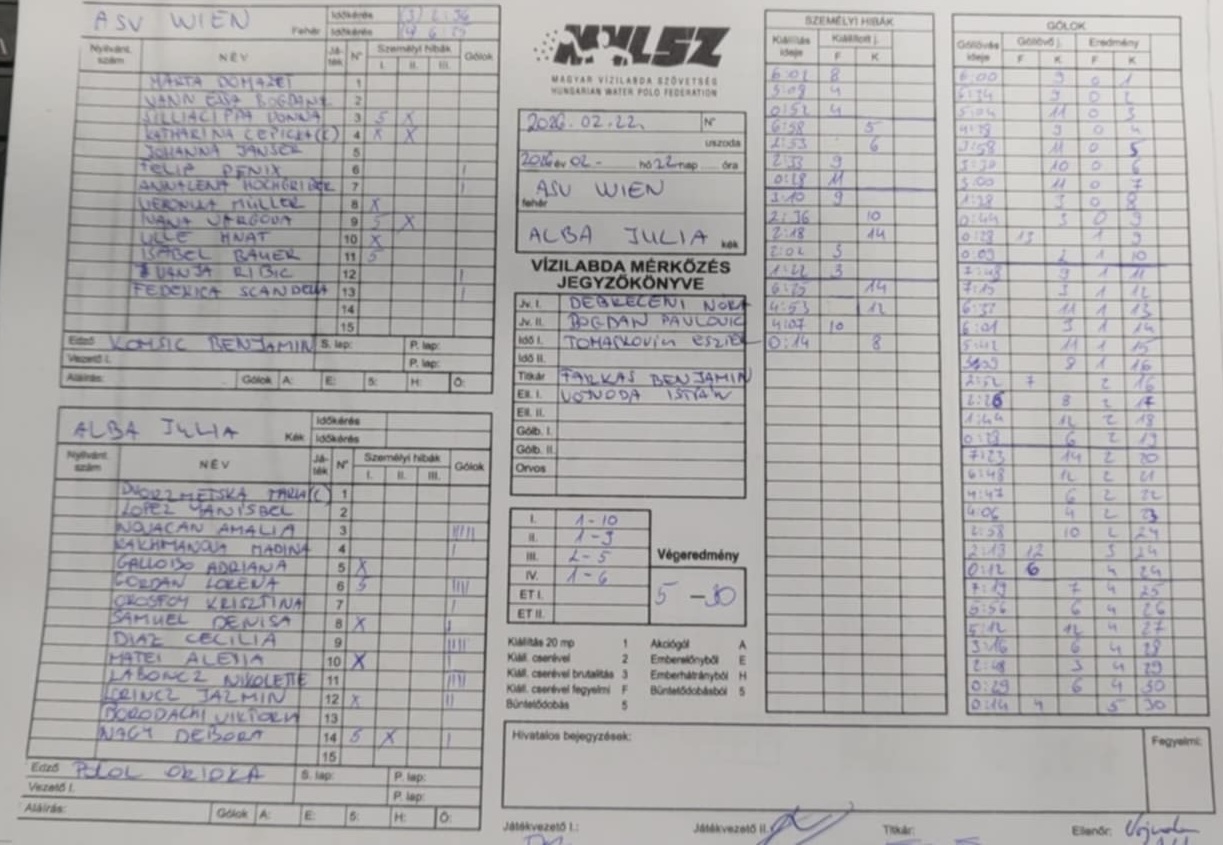 ASV WIEN
Fehér
Időkérés (3) 2:36
Időkérés (4) 6:25
Nyilvánt. szám NÉV Játék N° Személyi hibák I. II. III. Gólok
MARTA DOMAZET 1
BOGDAN 2
DONNA 3 5 X
KATHARINA CEPICKA (C) 4 X X
JOHANNA 5
FENIX 6 |
ANNALENA HOCHGRIBER 7 |
VERONIKA MÜLLER 8 X
IVANA VARGOVA 9 5 X
HNAT 10 X
ISABEL BAUER 11 5
VANJA RIBIC 12 |
FEDERICA SCANDELLA 13 |
14
15
Edző KOMSIC BENJAMIN S. lap: P. lap:
Vezető I. P. lap:
Aláírás: Gólok A: E: 5: H: Ö:
ALBA JULIA
Kék
Időkérés
Időkérés
Nyilvánt. szám NÉV Játék N° Személyi hibák I. II. III. Gólok
MARIA (C) 1
LOPEZ YANISBEL 2
NOJACAN AMALIA 3 |||||
RAKHMANOVA MADINA 4 |
ADRIANA 5 X
GORDAN LORENA 6 5
KRISZTINA 7 |
SAMUEL DENISA 8 X
DIAZ CECILIA 9
MATEI ALEXIA 10 X |
LABONCZ NIKOLETTE 11
LORINCZ JAZMIN 12 X
BORODACHI VIKTORIA 13
NAGY DEBORA 14 5 X |
15
Edző S. lap: P. lap:
Vezető I. P. lap:
Aláírás: Gólok A: E: 5: H: Ö:
MVLSZ
MAGYAR VÍZILABDA SZÖVETSÉG
HUNGARIAN WATER POLO FEDERATION
2026. 02. 22. N°
uszoda
2026 év 02 - hó 22 nap ..... óra
ASV WIEN
fehér
ALBA JULIA kék
VÍZILABDA MÉRKŐZÉS
JEGYZŐKÖNYVE
Jv. I. DEBRECENI NORA
Jv. II. BOGDAN PAVLOVIC
Idő I. ESZTER
Idő II.
Titkár FARKAS BENJAMIN
Ell. I. VOJVODA ISTVAN
Ell. II.
Gólb. I.
Gólb. II.
Orvos
I. 1-10
II. 1-9
III. 2-5
IV. 1-6
ET I.
ET II.
Végeredmény
5 - 30
Kiállítás 20 mp 1 Akciógól A
Kiáll. cserével 2 Emberelőnyből E
Kiáll. cserével brutalitás 3 Emberhátrányból H
Kiáll. cserével fegyelmi F Büntetődobásból 5
Büntetődobás 5
SZEMÉLYI HIBÁK
Kiállítás ideje Kiállított j. F K
6:02 8
3:09 4
0:52 4
6:58 5
2:53 6
2:33 9
0:28 11
3:10 9
2:36 10
2:18 14
2:02 3
1:22 3
6:25 14
4:53 12
4:07 10
0:14 8
GÓLOK
Góllövés ideje Góllövő j. F K Eredmény F K
6:00 9 0 1
0 2
5:04 11 0 3
9 0 4
3:58 11 0 5
3:30 10 0 6
3:00 11 0 7
0 8
0:44 3 0 9
13 1 9
1 10
9 1 11
7:15 3 1 12
6:37 11 1 13
6:01 1 14
5:42 11 1 15
1 16
2:52 7 2 16
2:26 8 2 17
1:44 12 2 18
6 2 19
7:23 14 2 20
6:48 12 2 21
4:47 6 2 22
4:06 4 2 23
2:58 10 2 24
2:13 12 3 24
0:12 6 4 24
7:19 7 4 25
5:56 6 4 26
5:12 12 4 27
3:16 6 4 28
2:48 3 4 29
0:29 6 4 30
0:14 4 5 30
Hivatalos bejegyzések:
Fegyelmi:
Játékvezető I.: Játékvezető II. Titkár: Ellenőr: